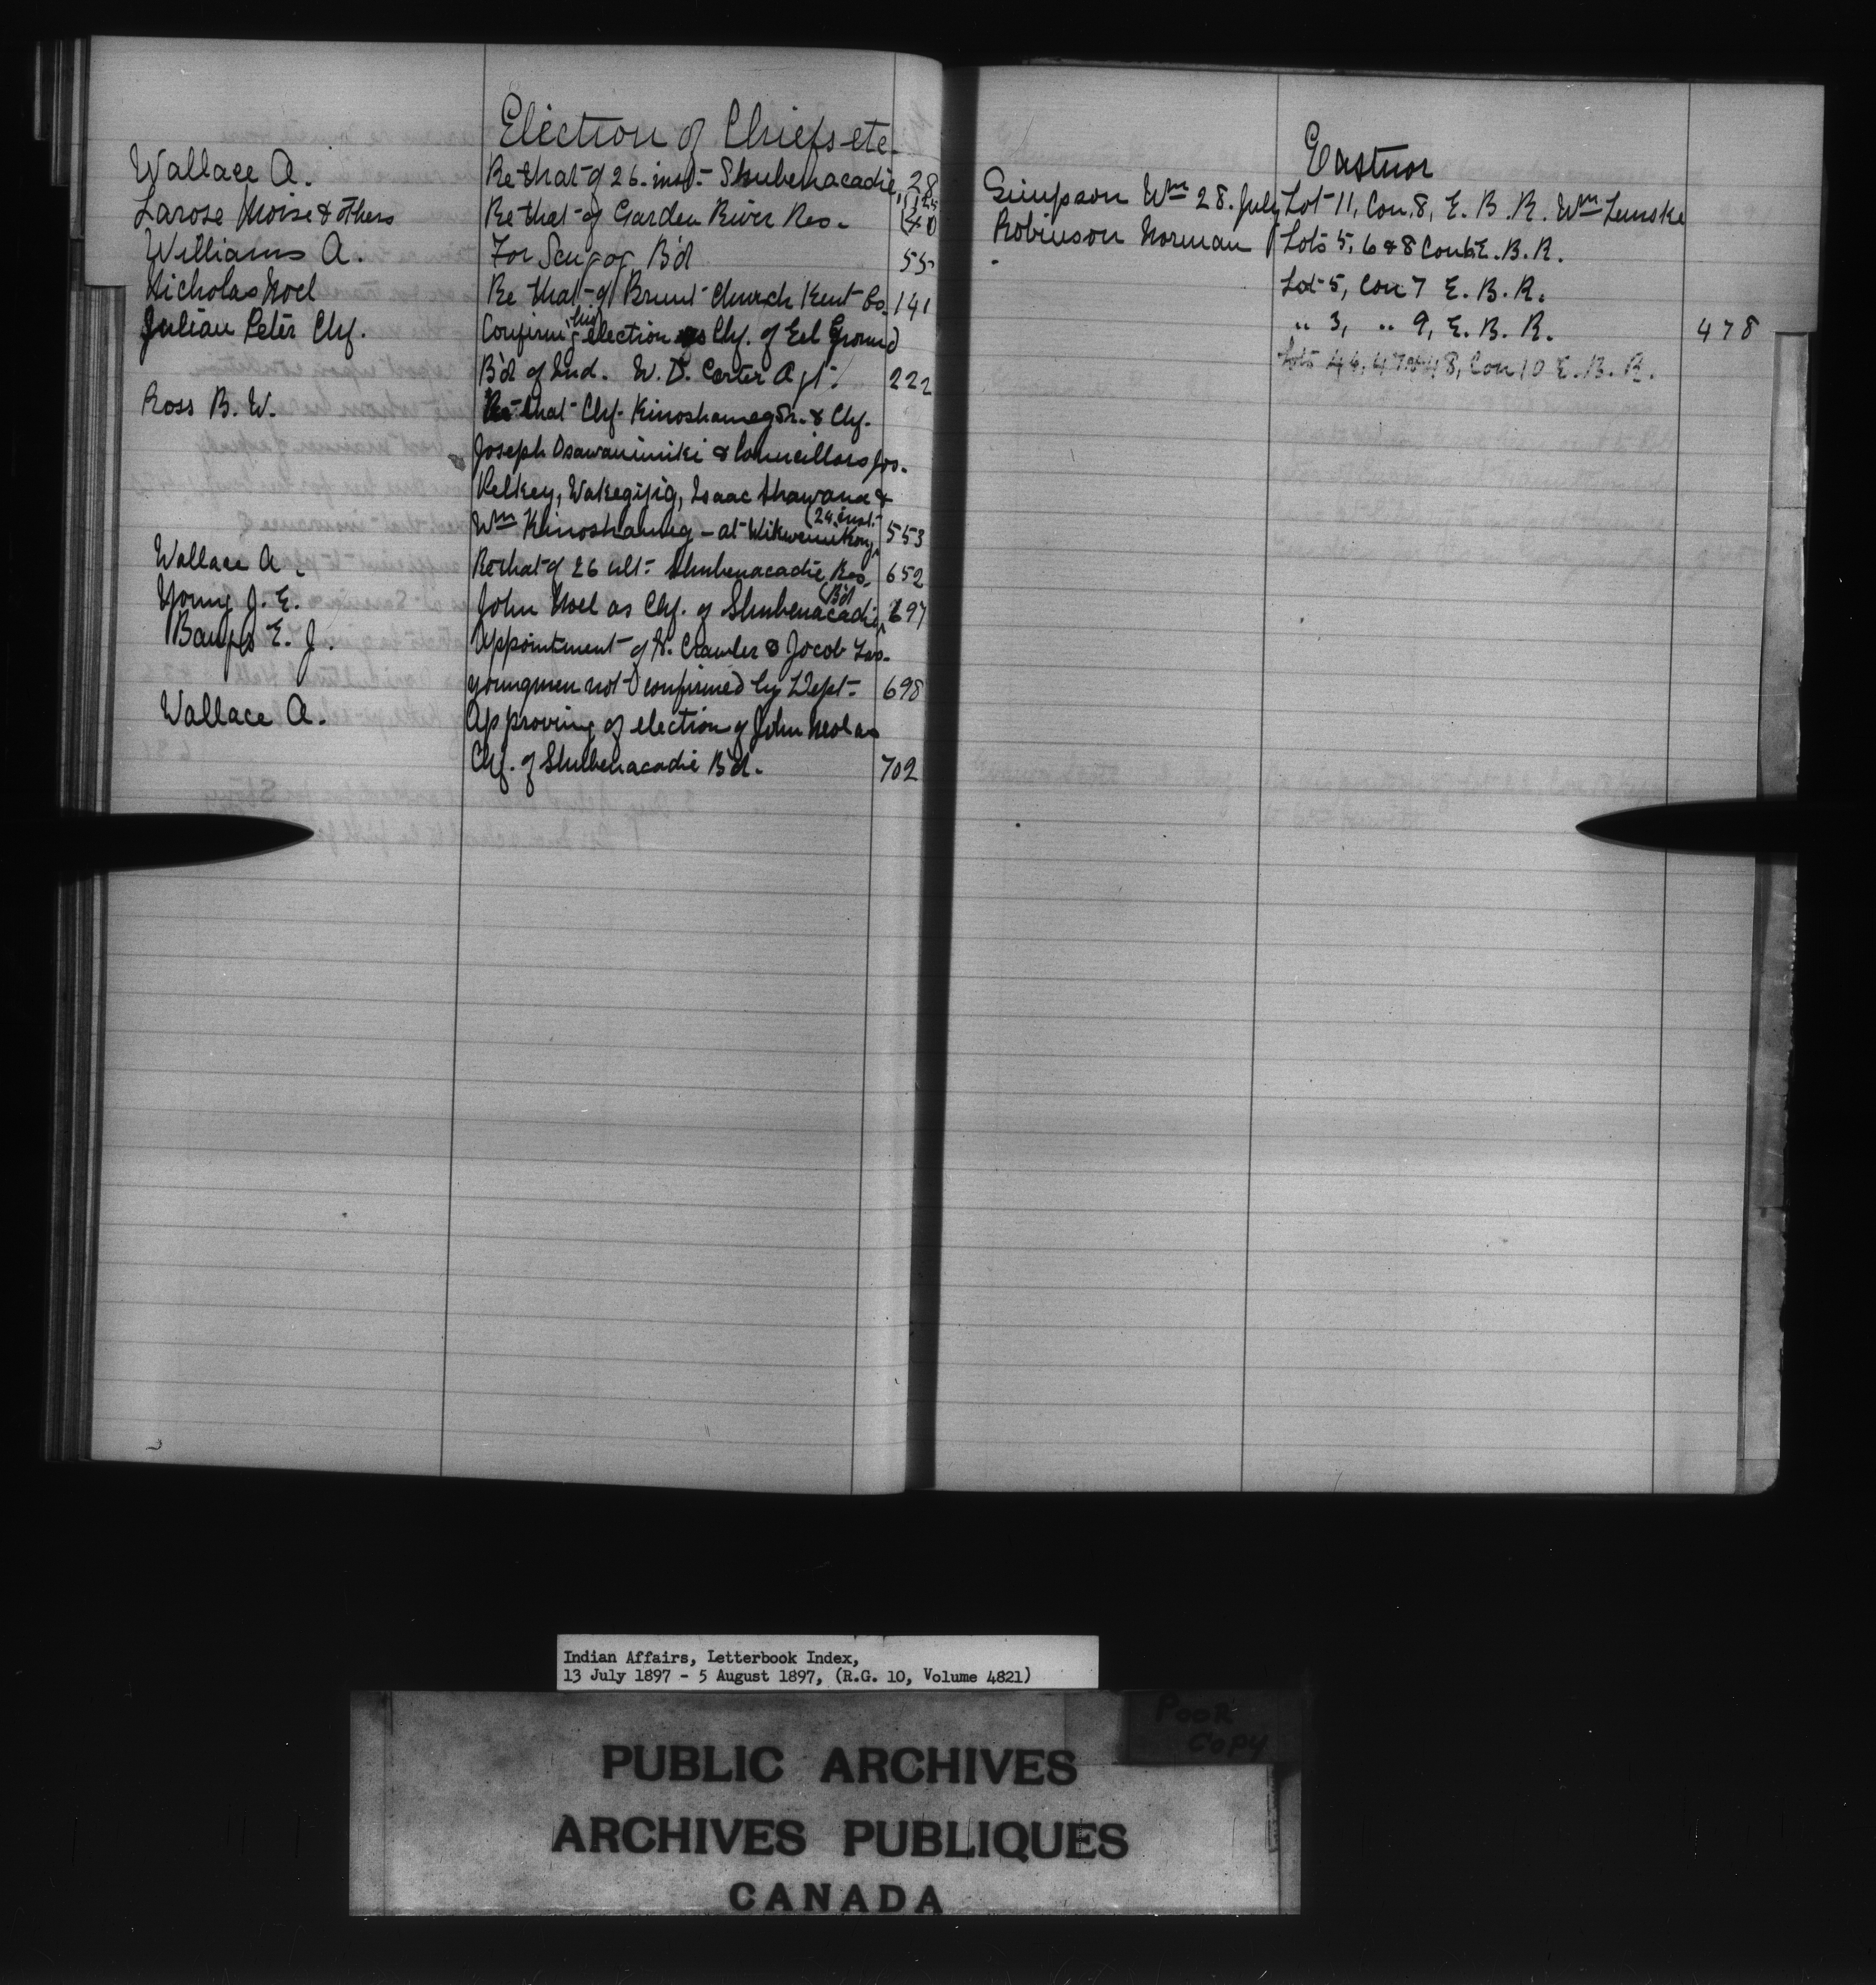 Election of Chiefs etc.
Wallace A. Re that of 26. inst. Shubenacadie 28
Larose Moise & others Re that of Garden River Res. 40
Williams A. For Saugog B'd 55
Nicholas Noel Re that of Brunt Church Kent Co. 141
Julian Peter Chf. Confirm'g his election as Chf. of Eel Ground
B'd of Ind. W. D. Carter Agt. 222
Ross B. W. Re that Chf. Kinoshameg Sr. & Chf.
Joseph Osawanimiki & Councillors Jos.
Pelkey, Wakegijig, Isaac Shawana &
Wm Kinoshameg - at Wikwemikong 24 inst. 553
Wallace A. Re that of 26 ult. Shubenacadie Res. 652
Young J. E. John Noel as Chf. of Shubenacadie B'd 697
Bangs E. J. Appointment of A. Crawler & Jacob Two
youngmen not confirmed by Dept. 698
Wallace A. Approving of election of John Noel as
Chf. of Shubenacadie B'd. 702
Eastnor
Simpson Wm 28. July Lot 11, Con. 8, E. B. R. Wm Lemske
Robinson Norman Lots 5, 6 & 8 Con 6 E. B. R.
Lot 5, Con 7 E. B. R.
" 3, " 9, E. B. R. 478
Lots 46, 47 & 48, Con 10 E. B. R.
Indian Affairs, Letterbook Index,
13 July 1897 - 5 August 1897, (R.G. 10, Volume 4821)
POOR
COPY
PUBLIC ARCHIVES
ARCHIVES PUBLIQUES
CANADA